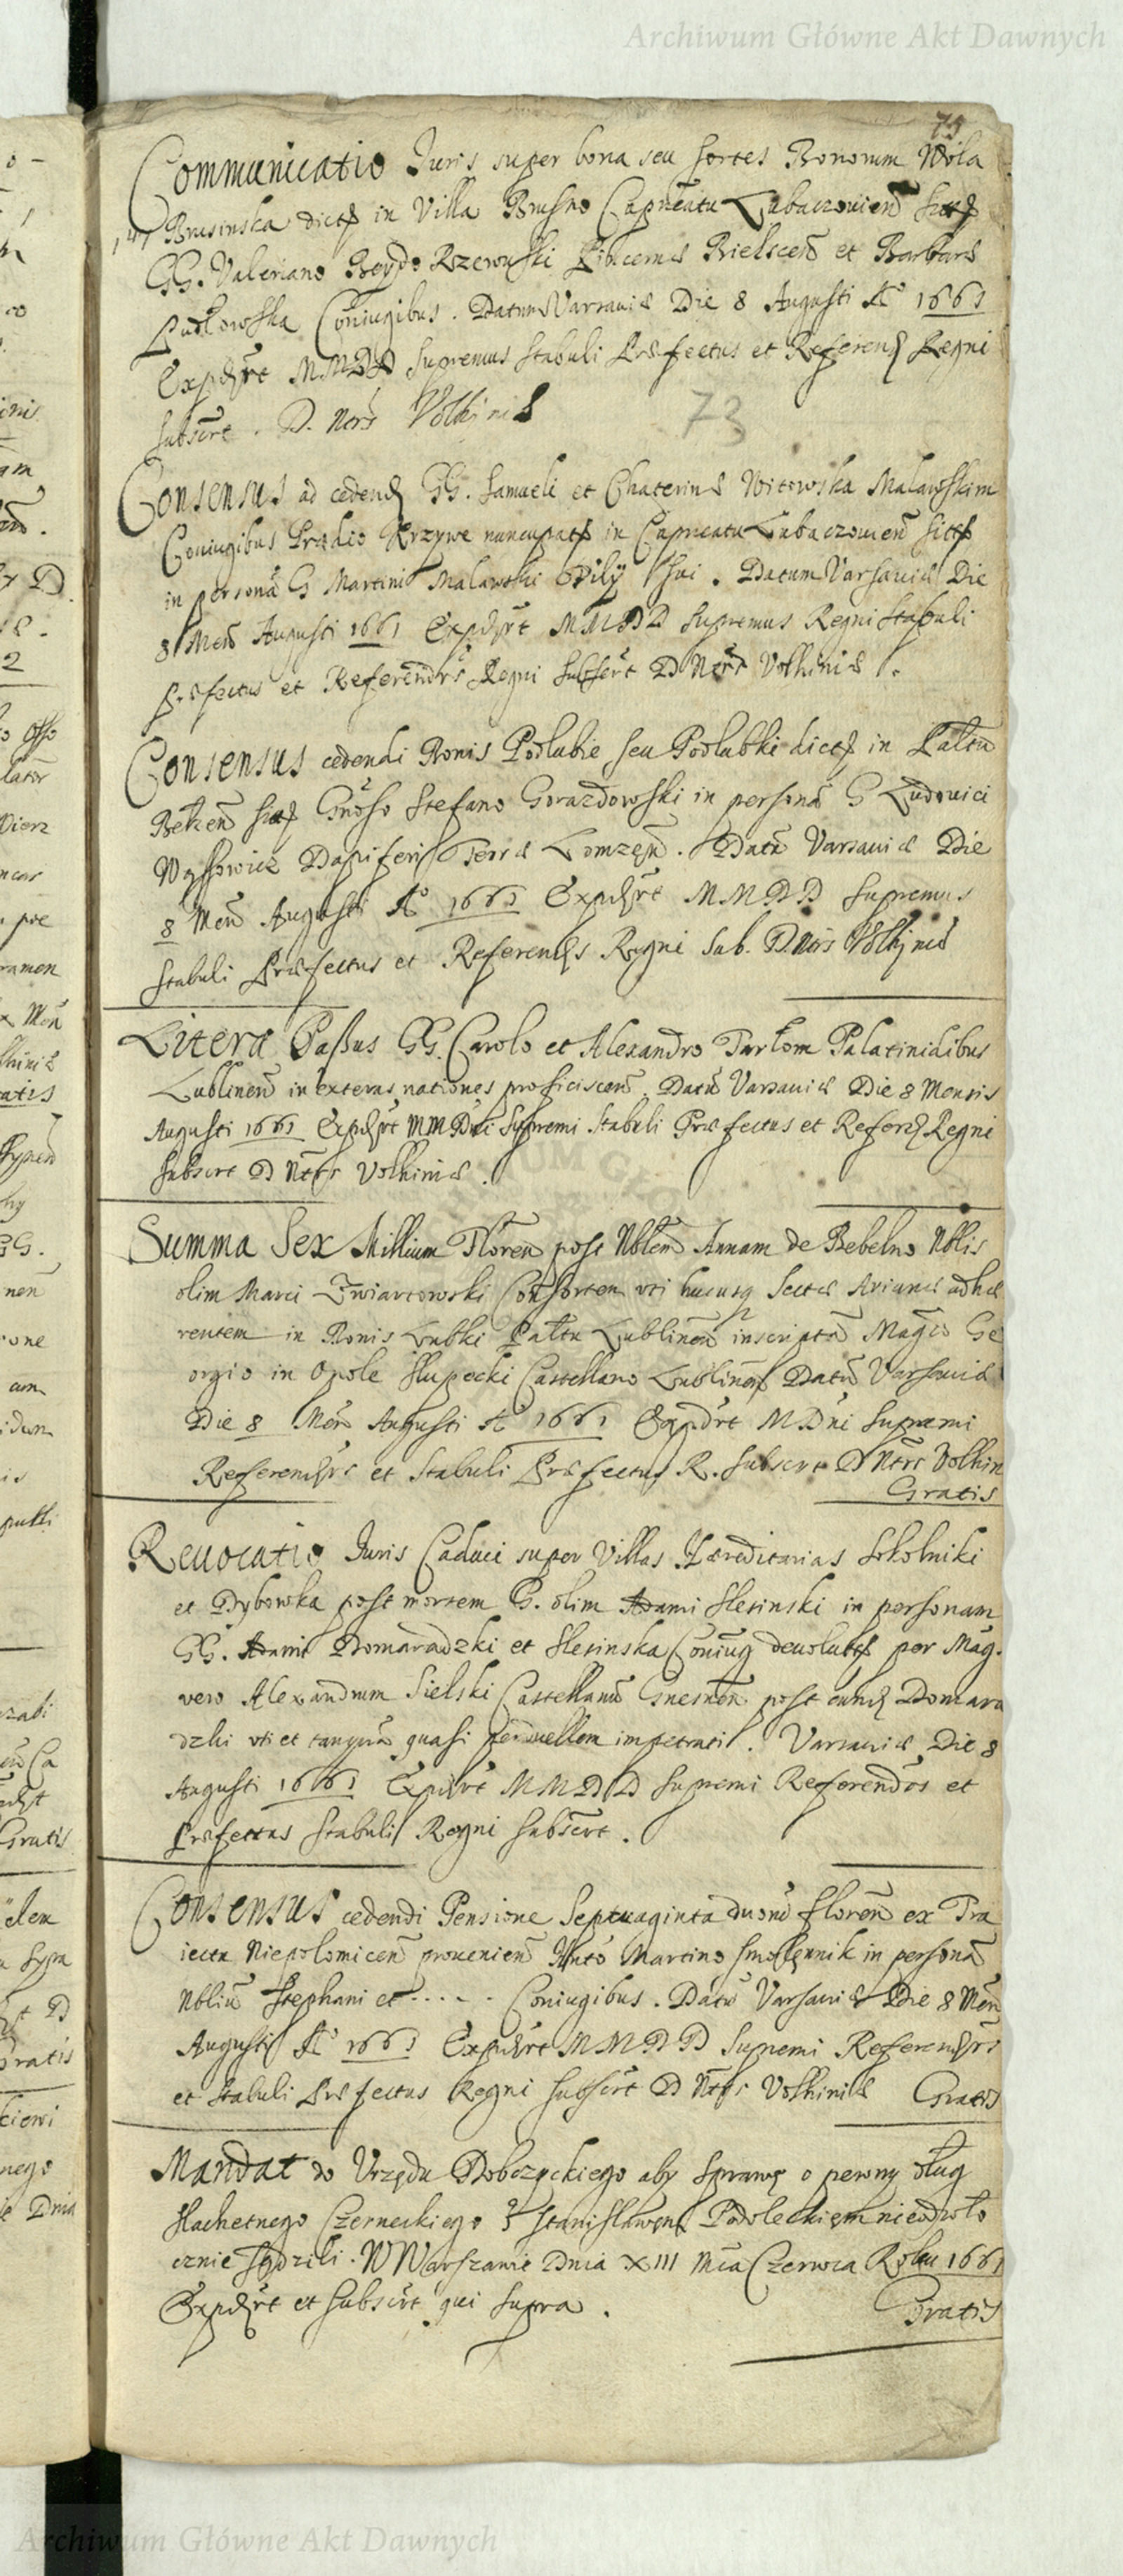 Archiwum Główne Akt Dawnych
73
Communicatio Juris super bona seu sortes Bonorum Wola
Brusinska dict in Villa Brusno Capneatu Lubaczouien sit
GG. Valeriano Beydo Rzewuski Pincernæ Bielscen et Barbaræ
Pudłowska Coniugibus. Datum Varsauiæ Die 8 Augusti Ao 1661
Expdrt MMDD Supremus Stabuli Præfectus et Referend Regni
subscrt. D. Nors Volhiniæ
73
Consensus ad cedend GG. Samueli et Chaterinæ Witowska Malawskim
Coniugibus Prædio Krzywe nuncupat in Capneatu Lubaczouien sit
in personā G Martini Malawski Filÿ sui. Datum Varsauiæ Die
8 Men Augusti 1661 Expdrt MMDD Supremus Regni Stabuli
præfectus et Referendrs Regni subscrt D Nors Volhiniæ.
Consensus cedendi Bonis Podlubie seu Podlubki dict in Pałtu
Belzen sit Gnoso Stefano Gorazdowski in personā G Ludouici
Wąssowicz Dapiferi Terræ Lomzen. Datū Varsauiæ Die
8 Men Augusti Ao 1661 Expdrt MMDD Supremus
Stabuli Præfectus et Referends Regni Sub. D. Nors Volhyniæ
Litera Passus GG. Carolo et Alexandro Tarłom Palatinidibus
Lublinen in exteras nationes proficiscen. Datū Varsauiæ Die 8 Mensis
Augusti 1661 Expdrt MM Dni Supremi Stabuli Præfectus et Referend Regni
subscrt D Ntrs Volhiniæ.
Summa Sex Millium Floren post Nblem Annam de Bebelno Nblis
olim Marci Lwiartowski Consortem uti hucusq Sectæ Arianæ adhæ
rentem in Bonis Lubki Pałtu Lublinen inscripta Magco Ge
orgio in Opole Słupecki Castellano Lublinen Datū Varsauiæ
Die 8 Men Augusti Ao 1661 Expdrt M Dni Supremi
Referendrs et Stabuli Præfectus R. Subscrt D Ntrs Volhin
Gratis
Reuocatio Juris Caduci super Villas Hæreditarias Sokolniki
et Dybowka post mortem G. olim Adami Slesinski in personam
GG. Adami Domaradzki et Slesinska Coniug deuolut per Mag.
vero Alexandrum Sielski Castellanū Gnesnen post eund Domara
dzki uti et tanquā quasi perduellem impetrati. Varsauiæ Die 8
Augusti 1661 Expdrt MMDD Supremi Referendos et
Præfectus Stabuli Regni Subscrt.
Consensus cedendi Pensione Septuaginta duorū floren ex Tra
iectu Niepolomicen prouenien Martino in personā
Nbliū Stephani et . . . . . Coniugibus. Datū Varsauiæ Die 8 Men
Augusti Ao 1661 Expdrt MMDD Supremi Referendrs
et Stabuli Præfectus Regni subscrt D Ntrs Volhiniæ Gratis
Mandat do Vrzędu Dobczyckiego aby sprawę o pewny dług
slachetnego Czerneckiego z Stanisławem Podoleckiem nieodwło
cznie sądzili. W Warszawie Dnia XIII Mca Czerwca Roku 1661
Expdrt et subscrt qui supra.
Gratis
Archiwum Główne Akt Dawnych